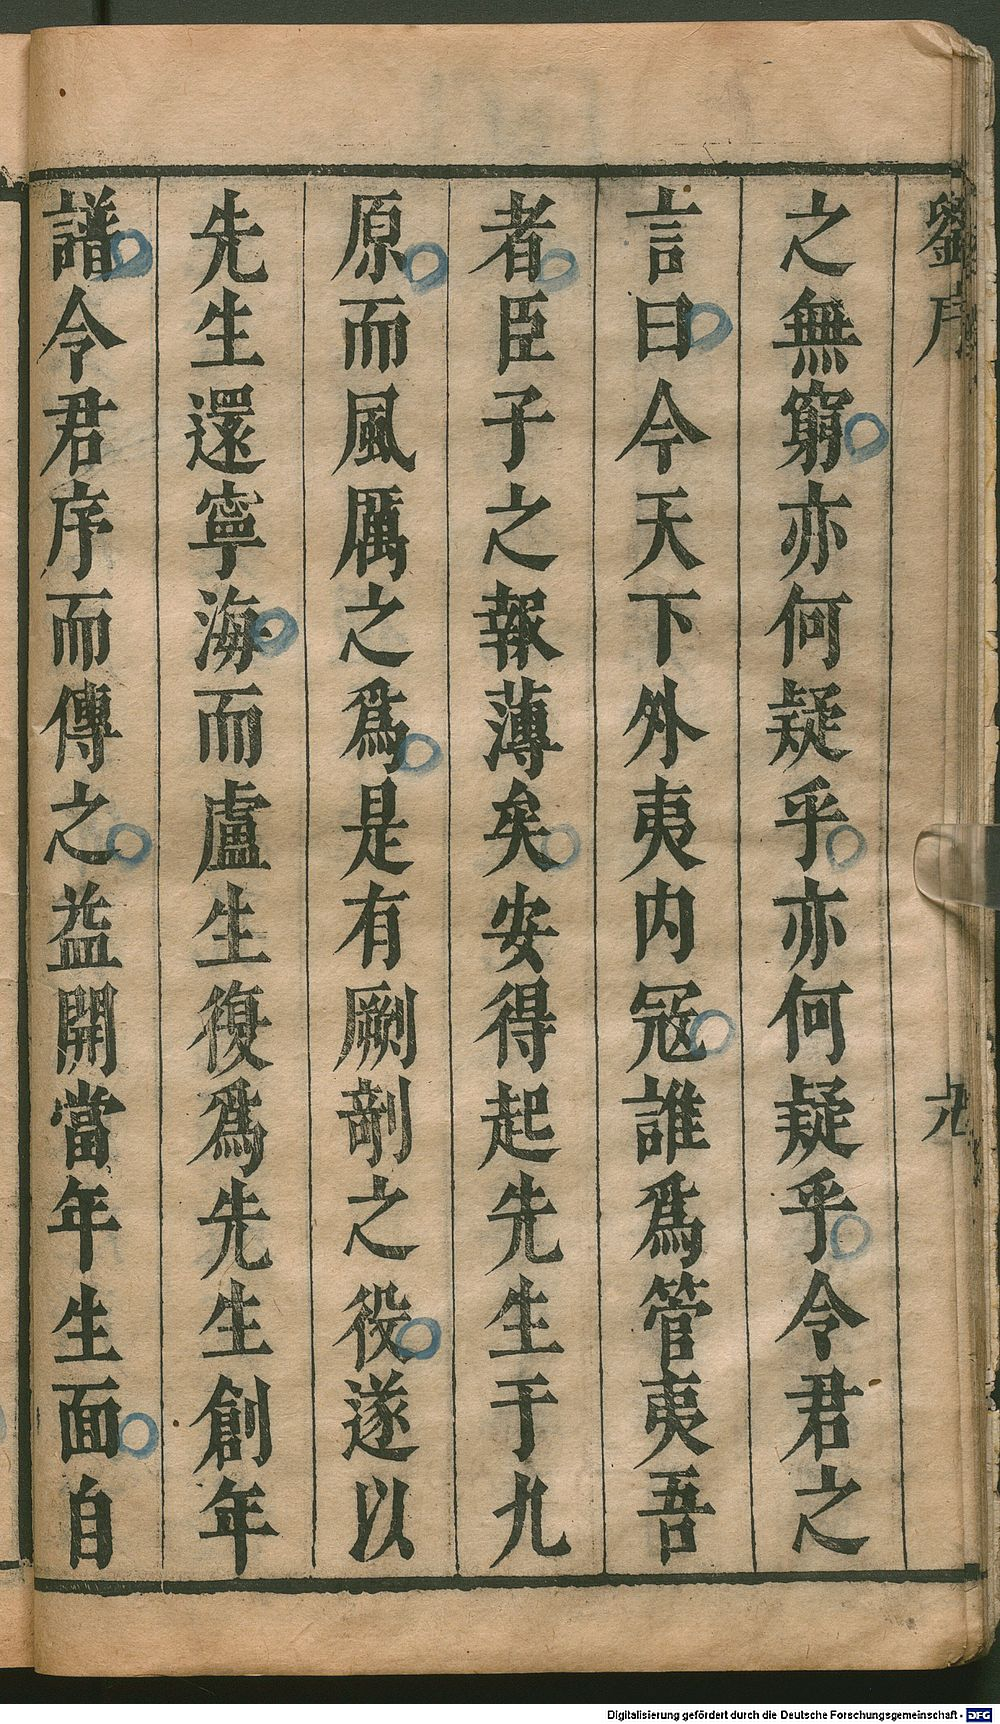 劉序 九
之無窮亦何疑乎亦何疑乎令君之
言曰今天下外夷内冦誰爲管夷吾
者臣子之報薄矣安得起先生于九
原而風厲之爲是有劂剞之役遂以
先生還寧海而盧生復爲先生創年
譜令君序而傳之益開當年生面自
Digitalisierung gefördert durch die Deutsche Forschungsgemeinschaft - DFG